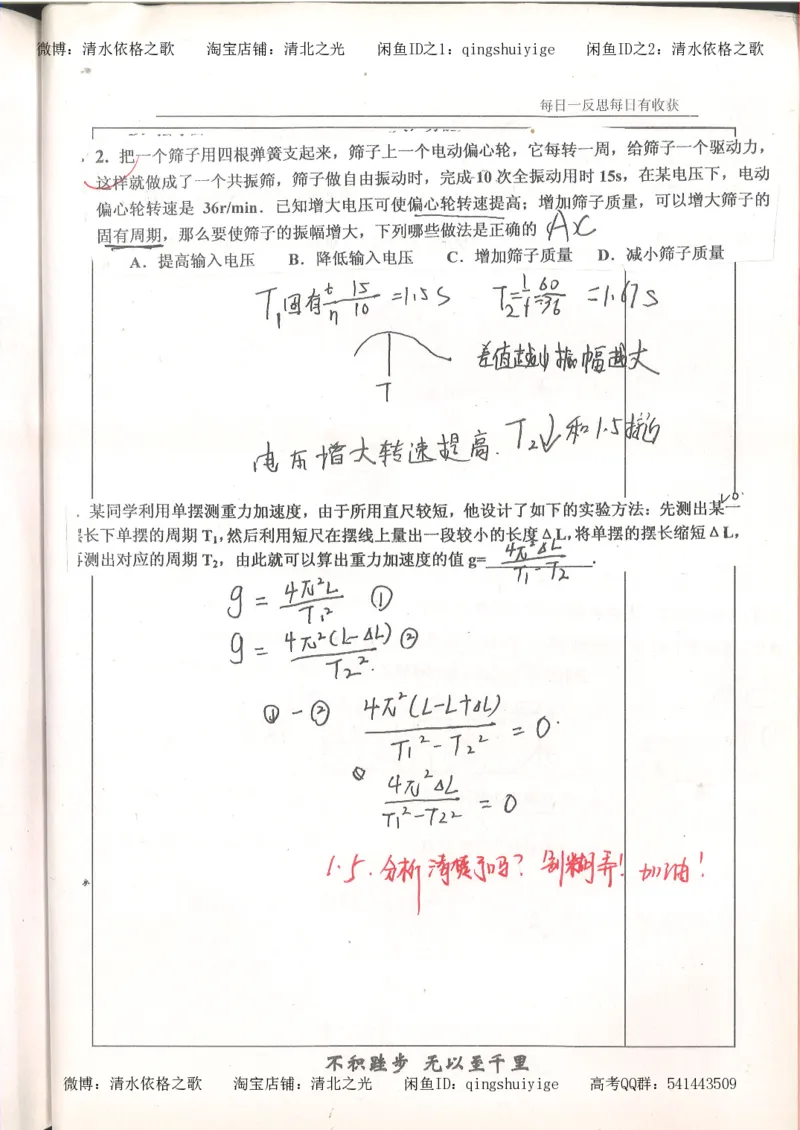 微博：清水依格之歌 淘宝店铺：清北之光 闲鱼ID之1：qingshuiyige 闲鱼ID之2：清水依格之歌
每日一反思每日有收获
2．把一个筛子用四根弹簧支起来，筛子上一个电动偏心轮，它每转一周，给筛子一个驱动力，
这样就做成了一个共振筛，筛子做自由振动时，完成 10 次全振动用时 15s，在某电压下，电动
偏心轮转速是 36r/min．已知增大电压可使偏心轮转速提高；增加筛子质量，可以增大筛子的
固有周期，那么要使筛子的振幅增大，下列哪些做法是正确的 AC
A．提高输入电压 B．降低输入电压 C．增加筛子质量 D．减小筛子质量
T₁固有=t/n 15/10 =1.5s T₂=1/f=60/36 =1.67s
差值越小振幅越大
T
电压增大转速提高. T₂↓和1.5接近
．某同学利用单摆测重力加速度，由于所用直尺较短，他设计了如下的实验方法：先测出某一
摆长下单摆的周期 T₁,然后利用短尺在摆线上量出一段较小的长度ΔL,将单摆的摆长缩短ΔL,
再测出对应的周期 T₂，由此就可以算出重力加速度的值 g= 4π²ΔL/T₁-T₂ .
g = 4π²L/T₁² ①
g = 4π²(L-ΔL)/T₂². ②
①-② 4π²(L-L+ΔL)/T₁²-T₂² = 0.
4π²ΔL/T₁²-T₂² = 0
1.5.分析清楚了吗？别糊弄！加油！
不积跬步 无以至千里
微博：清水依格之歌 淘宝店铺：清北之光 闲鱼ID：qingshuiyige 高考QQ群：541443509